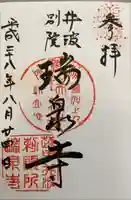 参拝
井波
別院
瑞泉寺
平成二八年八月廿四日